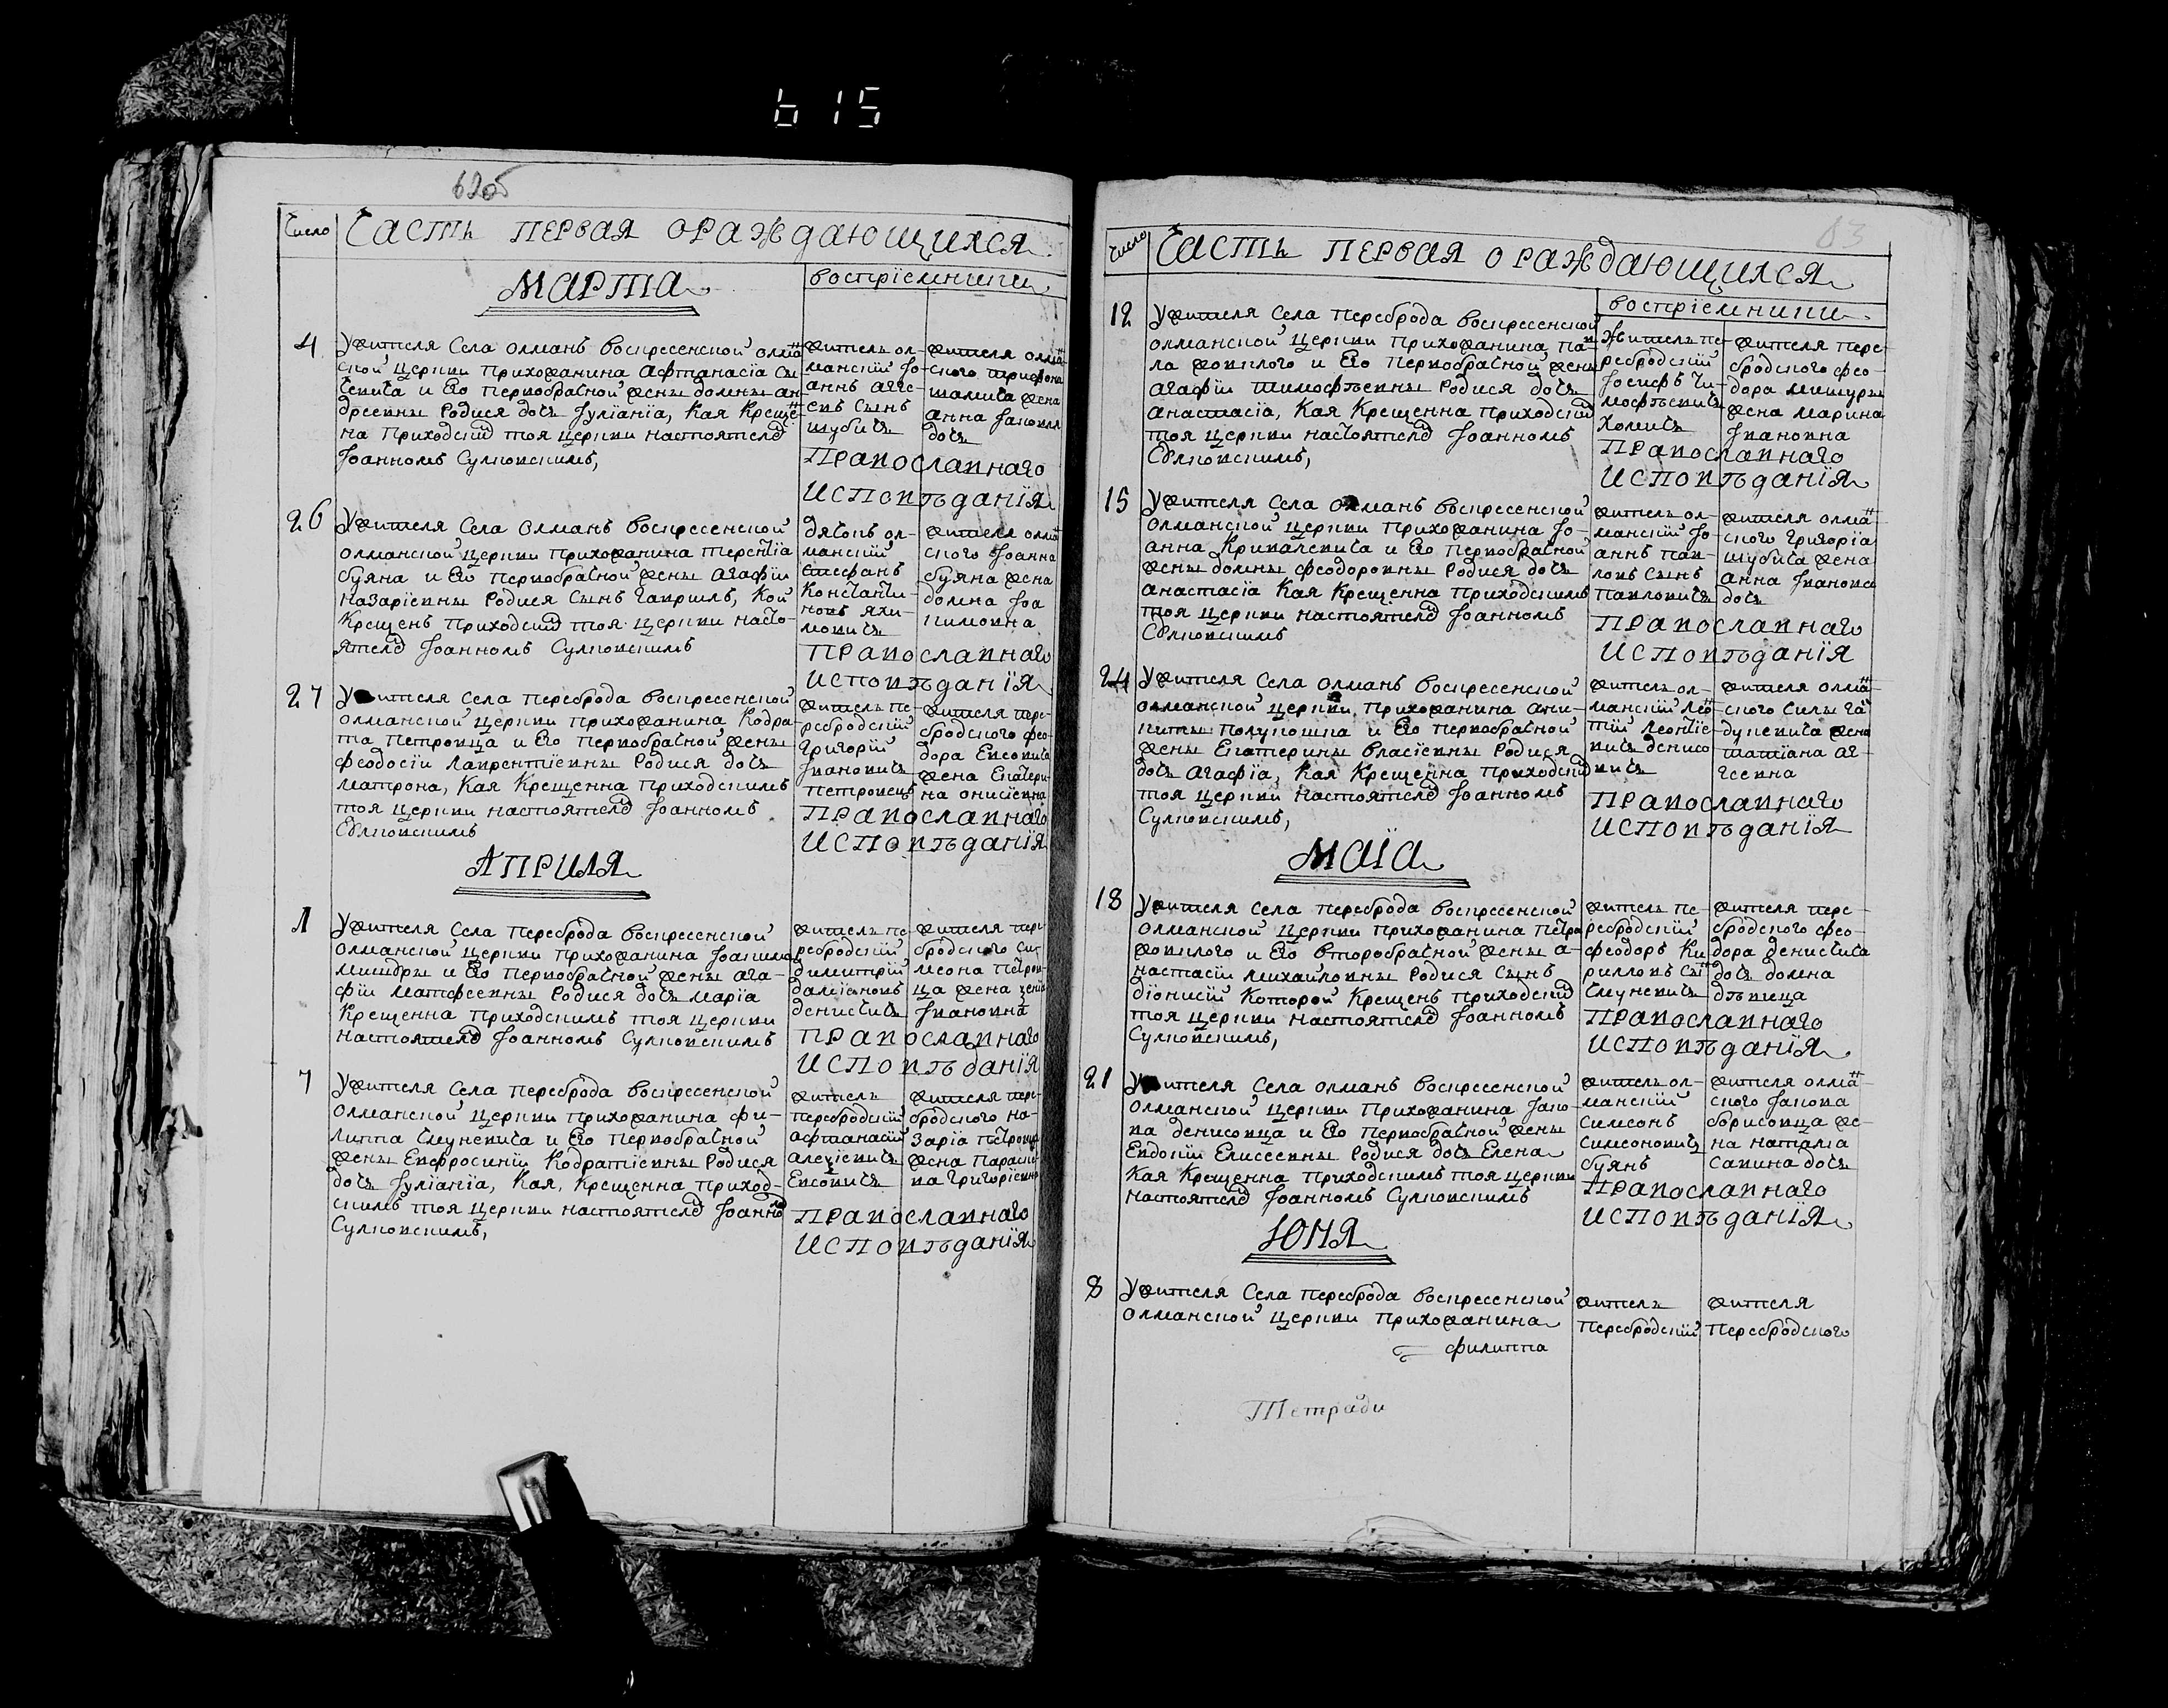 615
62об
Число
Часть первая о раждающихся
Марта
воспріемники
4
Ужителя Села Олманъ Воспресенской Олман
ской Церкви Прихожанина Афтанасіа
и Его Первобрачной жены Домны Ан
дреевны Родися Дочь Іуліаніа, Кая Креще
на Приходскимъ тоя Церкви настоятелемъ
Іоанномъ Сулковскимъ,
житель ол-
манскій Іо-
аннъ Агге-
евъ Сынъ
Шубичъ
жителя олман
ского Трифона
жена
Анна Іаковля
дочь
Православнаго
Исповѣданія
26
Ужителя Села Олманъ Воскресенской
Олманской Церкви Прихожанина Терентіа
Буяна и Его Первобрачной жены Агафіи
Назаріевны Родися Сынъ Гавріилъ, Кой
Крещенъ Приходскимъ тоя Церкви насто-
ятелемъ Іоанномъ Сулковскимъ
Дячокъ ол-
манскій
Стефанъ
Константи-
новъ Яхи-
мовичъ
жителя олман
ского Іоанна
Буяна жена
Домна Іоа
кимовна
Православнаго
Исповѣданія
27
Ужителя Села Переброда Воскресенской
Олманской Церкви Прихожанина Кодра-
та Петровца и Его Первобрачной жены
Феодосіи Лаврентіевны Родися Дочь
Матрона, Кая Крещенна Приходскимъ
тоя Церкви настоятелемъ Іоанномъ
Сулковскимъ
житель пе-
ребродскій
Григорій
Івановичъ
Петровецъ
жителя пере-
бродского Фео-
дора Евсовича
жена Екатери-
на Онисіевна
Православнаго
Исповѣданія
Априля
1
Ужителя Села Переброда Воскресенской
Олманской Церкви Прихожанина Іоакима
Мишуры и Его Первобрачной жены Ага-
фіи Матфеевны Родися Дочь Маріа
Крещенна Приходскимъ тоя Церкви
настоятелемъ Іоанномъ Сулковскимъ
житель пе-
ребродскій
Димитрій
Даміановъ
Денисчичъ
жителя пере
бродского Си-
меона Петров-
ца жена
Івановна
Православнаго
Исповѣданія
7
Ужителя Села Переброда Воскресенской
Олманской Церкви Прихожанина Фи-
липпа Смуневича и Его Первобрачной
жены Евфросиніи Кодратіевны Родися
Дочь Іуліаніа, Кая, Крещенна Приход-
скимъ тоя Церкви настоятелемъ Іоанномъ
Сулковскимъ,
житель
перебродскій
Афтанасій
Алексіевичъ
Евсовичъ
жителя пере-
бродского На-
заріа Петровца
жена Параске-
ва Григоріевна
Православнаго
Исповѣданія
63
Число
Часть первая о раждающихся
воспріемники
12
Ужителя Села Переброда Воскресенской
Олманской Церкви Прихожанина Пав-
ла Жовклого и Его Первобрачной жены
Агафіи Тимофѣевны Родися Дочь
Анастасіа, Кая Крещенна Приходскимъ
тоя Церкви настоятелемъ Іоанномъ
Сулковскимъ,
житель пе-
ребродскій
Іосифъ Ти-
мофѣевичъ
Хомичъ
жителя пере-
бродского Фео-
дора Мишуры
жена Марина
Івановна
Православнаго
Исповѣданія
15
Ужителя Села Олманъ Воскресенской
Олманской Церкви Прихожанина Іо-
анна Кривалевича и Его Первобрачной
жены Домны Феодоровны Родися Дочь
Анастасіа Кая Крещенна Приходскимъ
тоя Церкви настоятелемъ Іоанномъ
Сулковскимъ
житель ол-
манскій Іо-
аннъ Пав-
ловъ Сынъ
Павловичъ
жителя олман
ского Григоріа
Шубича жена
Анна Іванова
дочь
Православнаго
Исповѣданія
24
Ужителя Села Олманъ Воскресенской
Олманской Церкви Прихожанина Ани-
киты Полукошка и Его Первобрачной
жены Екатерины Власіевны Родися
Дочь Агафіа, Кая Крещенна Приходскимъ
тоя Церкви настоятелемъ Іоанномъ
Сулковскимъ,
житель ол-
манскій Леон
тій Леонтіе-
вичъ Денисо
вичъ
жителя олман-
ского Силы Га
дуневича жена
Татіана Аг-
геевна
Православнаго
Исповѣданія
Маіа
18
Ужителя Села Переброда Воскресенской
Олманской Церкви Прихожанина Петра
Жовклого и Его Второбрачной жены А-
настасіи Михайловны Родися Сынъ
Діонисій Которой Крещенъ Приходскимъ
тоя Церкви настоятелемъ Іоанномъ
Сулковскимъ,
житель пе-
ребродскій
Феодоръ Ки-
рилловъ Сынъ
Смуневичъ
жителя пере-
бродского Фео-
дора Денисчича
дочь Домна
дѣвица
Православнаго
Исповѣданія
21
Ужителя Села Олманъ Воскресенской
Олманской Церкви Прихожанина Іако-
ва Денисовца и Его Первобрачной жены
Евдокіи Елисеевны Родися Дочь Елена
Кая Крещенна Приходскимъ тоя Церкви
настоятелемъ Іоанномъ Сулковскимъ
житель ол-
манскій
Симеонъ
Симеоновичъ
Буянъ
жителя олман
ского Іакова
Борисовца же-
на Наталіа
Савина дочь
Православнаго
Исповѣданія
Юня
8
Ужителя Села Переброда Воскресенской
Олманской Церкви Прихожанина
Филиппа
житель
Перебродскій
жителя
Перебродского
Тетради